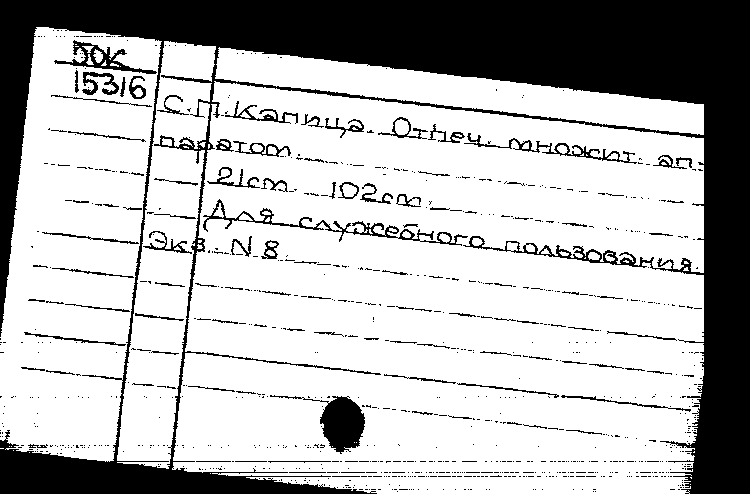 50К
15316
С.П. Капица. Отпеч. множит. ап-
паратом.
21ст. 102ст.
Для служебного пользования.
Экз. N 8.